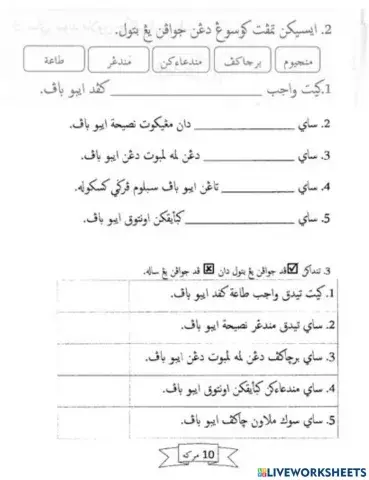 2. ايسيكن تمڤت كوسوڠ دڠن جواڤن يڠ بتول.
منچيوم برچاكڤ مندعاءكن مندڠر طاعة
1. كيت واجب ____________ كڤد ايبو باڤ.
2. ساي ____________ دان مڠيكوت نصيحة ايبو باڤ.
3. ساي ____________ دڠن لمه لمبوت دڠن ايبو باڤ.
4. ساي ____________ تاڠن ايبو باڤ سبلوم ڤرݢي كسكوله.
5. ساي ____________ كباٴيقكن اونتوق ايبو باڤ.
3. تنداكن ☑ ڤد جواڤن يڠ بتول دان ☒ ڤد جواڤن يڠ ساله.
1. كيت تيدق واجب طاعة كڤد ايبو باڤ.
2. ساي تيدق مندڠر نصيحة ايبو باڤ.
3. ساي برچاكڤ دڠن لمه لمبوت دڠن ايبو باڤ.
4. ساي مندعاءكن كباٴيقكن اونتوق ايبو باڤ.
5. ساي سوك ملاون چاكڤ ايبو باڤ.
10 مركه
LIVEWORKSHEETS